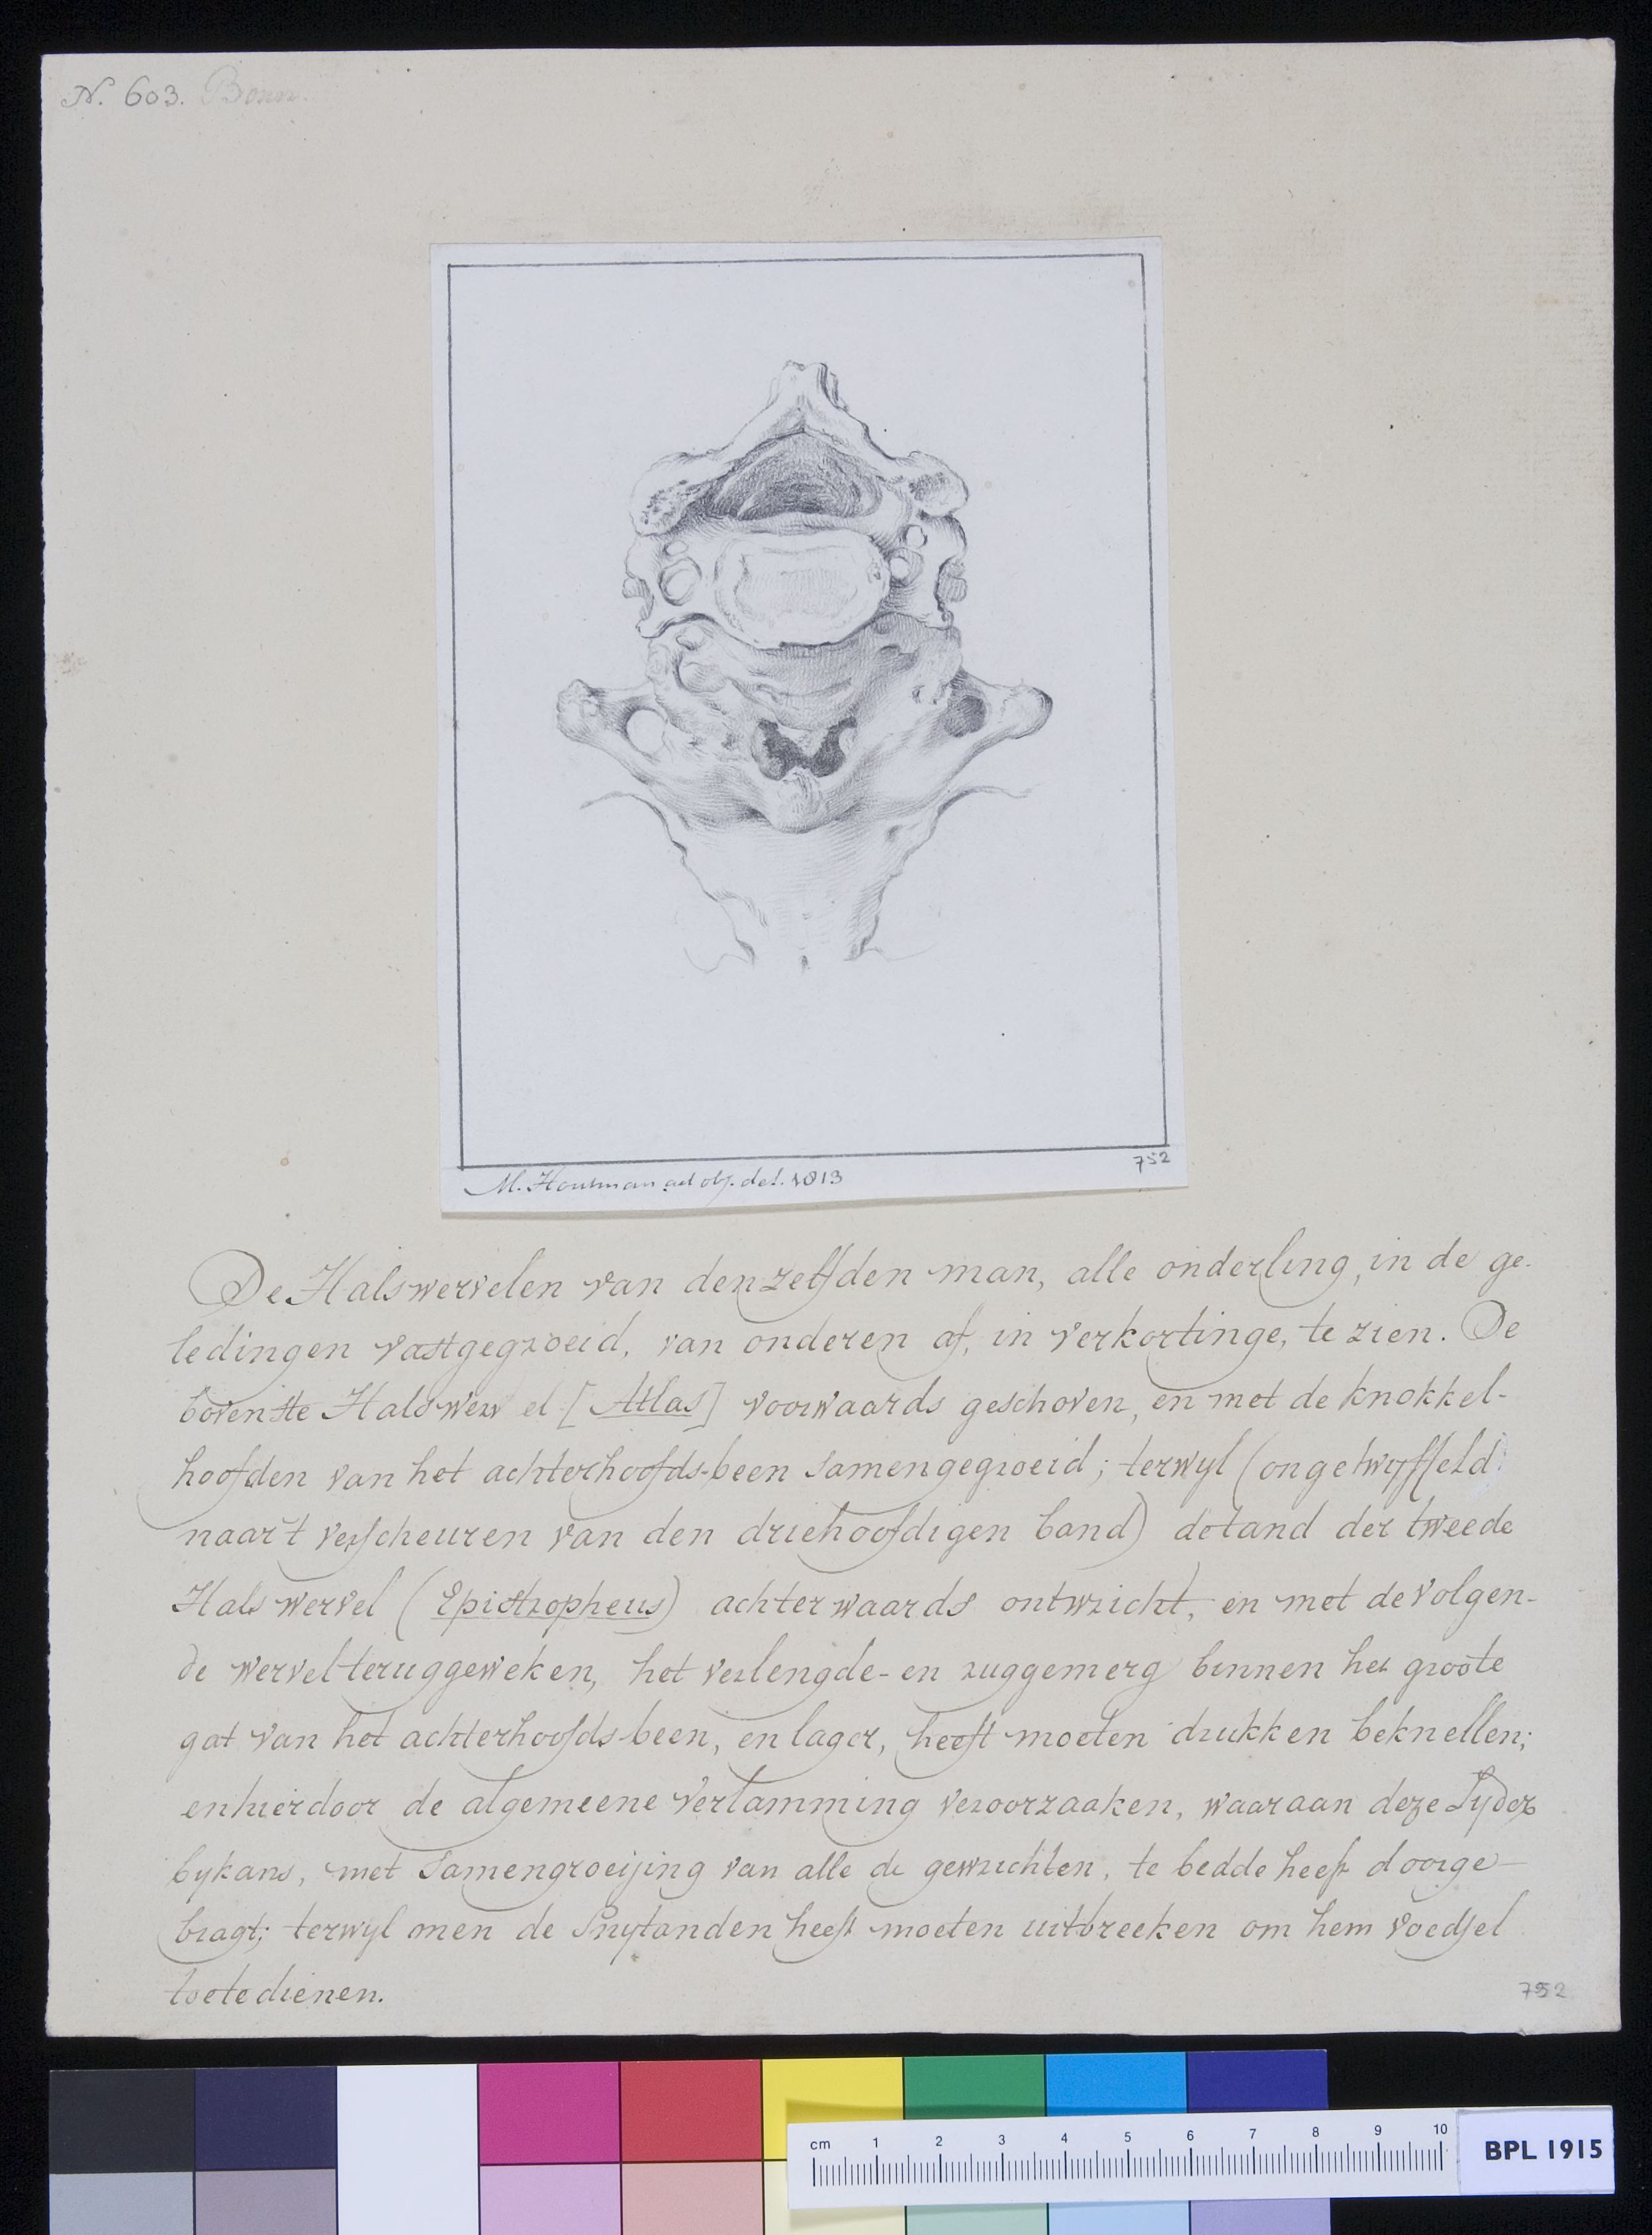 N. 603. Bonn.
M. Houtman ad obj. del. 1813
752
De Halswervelen van denzelfden man, alle onderling, in de ge-
ledingen vastgegroeid, van onderen af, in verkortinge, te zien. De
bovenste Halswervel [Atlas] voorwaards geschoven, en met de knokkel-
hoofden van het achterhoofds-been samengegroeid; terwyl (ongetwyffeld
naar't verscheuren van den driehoofdigen band) de tand der tweede
Halswervel (Epistropheus) achterwaards ontwricht, en met de volgen-
de wervel teruggeweken, het verlengde- en ruggemerg binnen het groote
gat van het achterhoofds-been, en lager, heeft moeten drukken beknellen;
en hierdoor de algemeene verlamming veroorzaaken, waaraan deze Lyder
bykans, met samengroeijing van alle de gewrichten, te bedde heeft doorge-
bragt; terwyl men de Snytanden heeft moeten uitbreeken om hem voedsel
toetedienen.
752
cm 1 2 3 4 5 6 7 8 9 10
BPL 1915